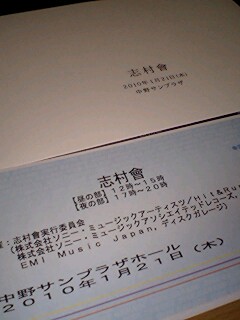 志村會
2010年1月21日(木)
中野サンプラザ
志村會
【昼の部】12時〜15時
【夜の部】17時〜20時
:志村會実行委員会
(株式会社ソニー・ミュージックアーティスツ/Hit&Ru
株式会社ソニー・ミュージックアソシエイテッドレコーズ,
EMI Music Japan, ディスクガレージ)
中野サンプラザホール
2010年1月21日 (木)